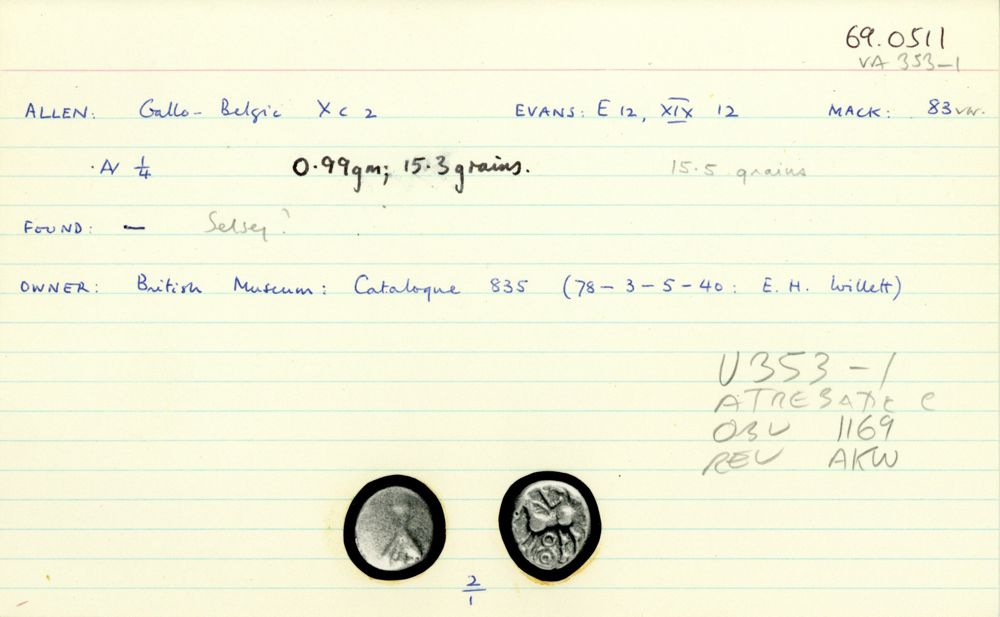 69.0511
VA 353-1
ALLEN: Gallo-Belgic X c 2 EVANS: E 12, XIX 12 MACK: 83 var.
·AV 1/4 0.99gm; 15.3 grains. 15.5 grains
FOUND: — Selsey?
OWNER: British Museum: Catalogue 835 (78-3-5-40: E. H. Willett)
V353-1
ATREBATIC C
OBV 1169
REV AKW
2/1